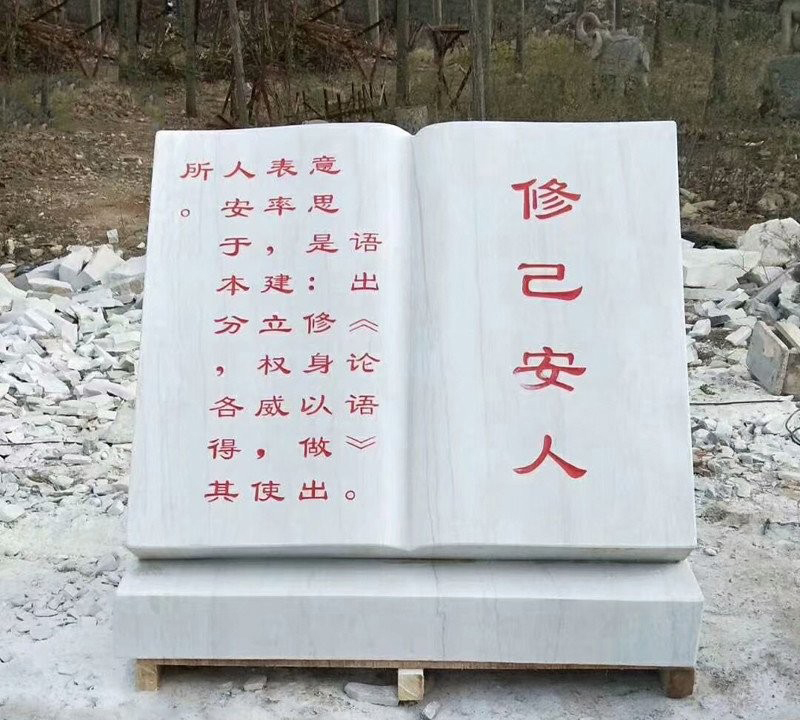 修己安人
语出《论语》。
意思是：修身以做出
表率，建立权威，使
人安于本分，各得其
所。